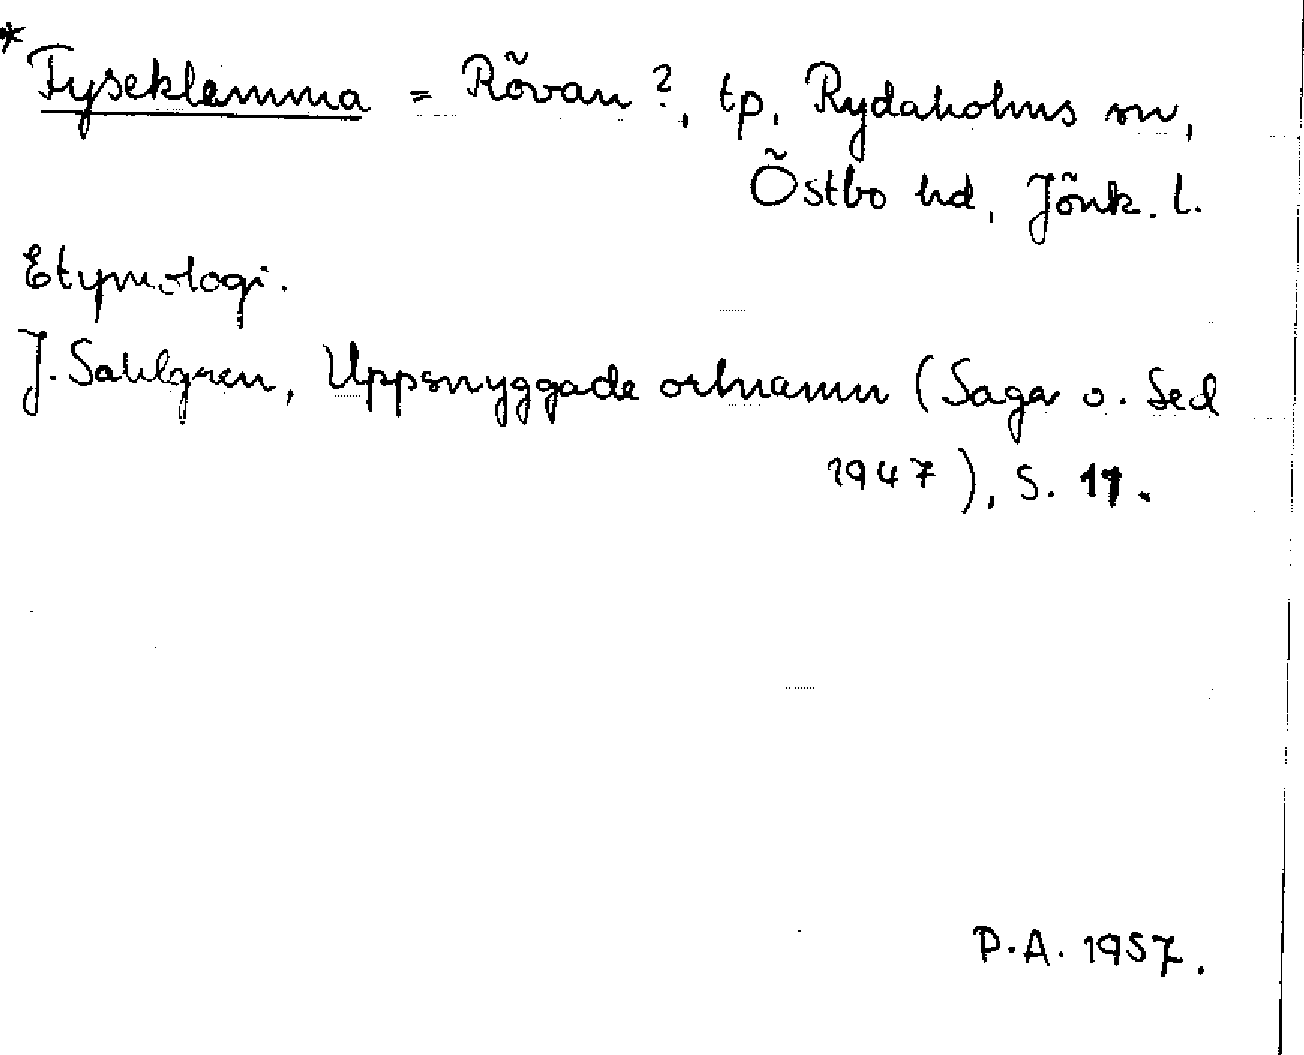 *Fyseklemma = Rövan?, tp, Rydaholms sn,
Östbo hd, Jönk. l.
Etymologi.
J. Sahlgren, Uppsnyggade ortnamn (Saga o. Sed
1947), S. 11.
P.A. 1957.